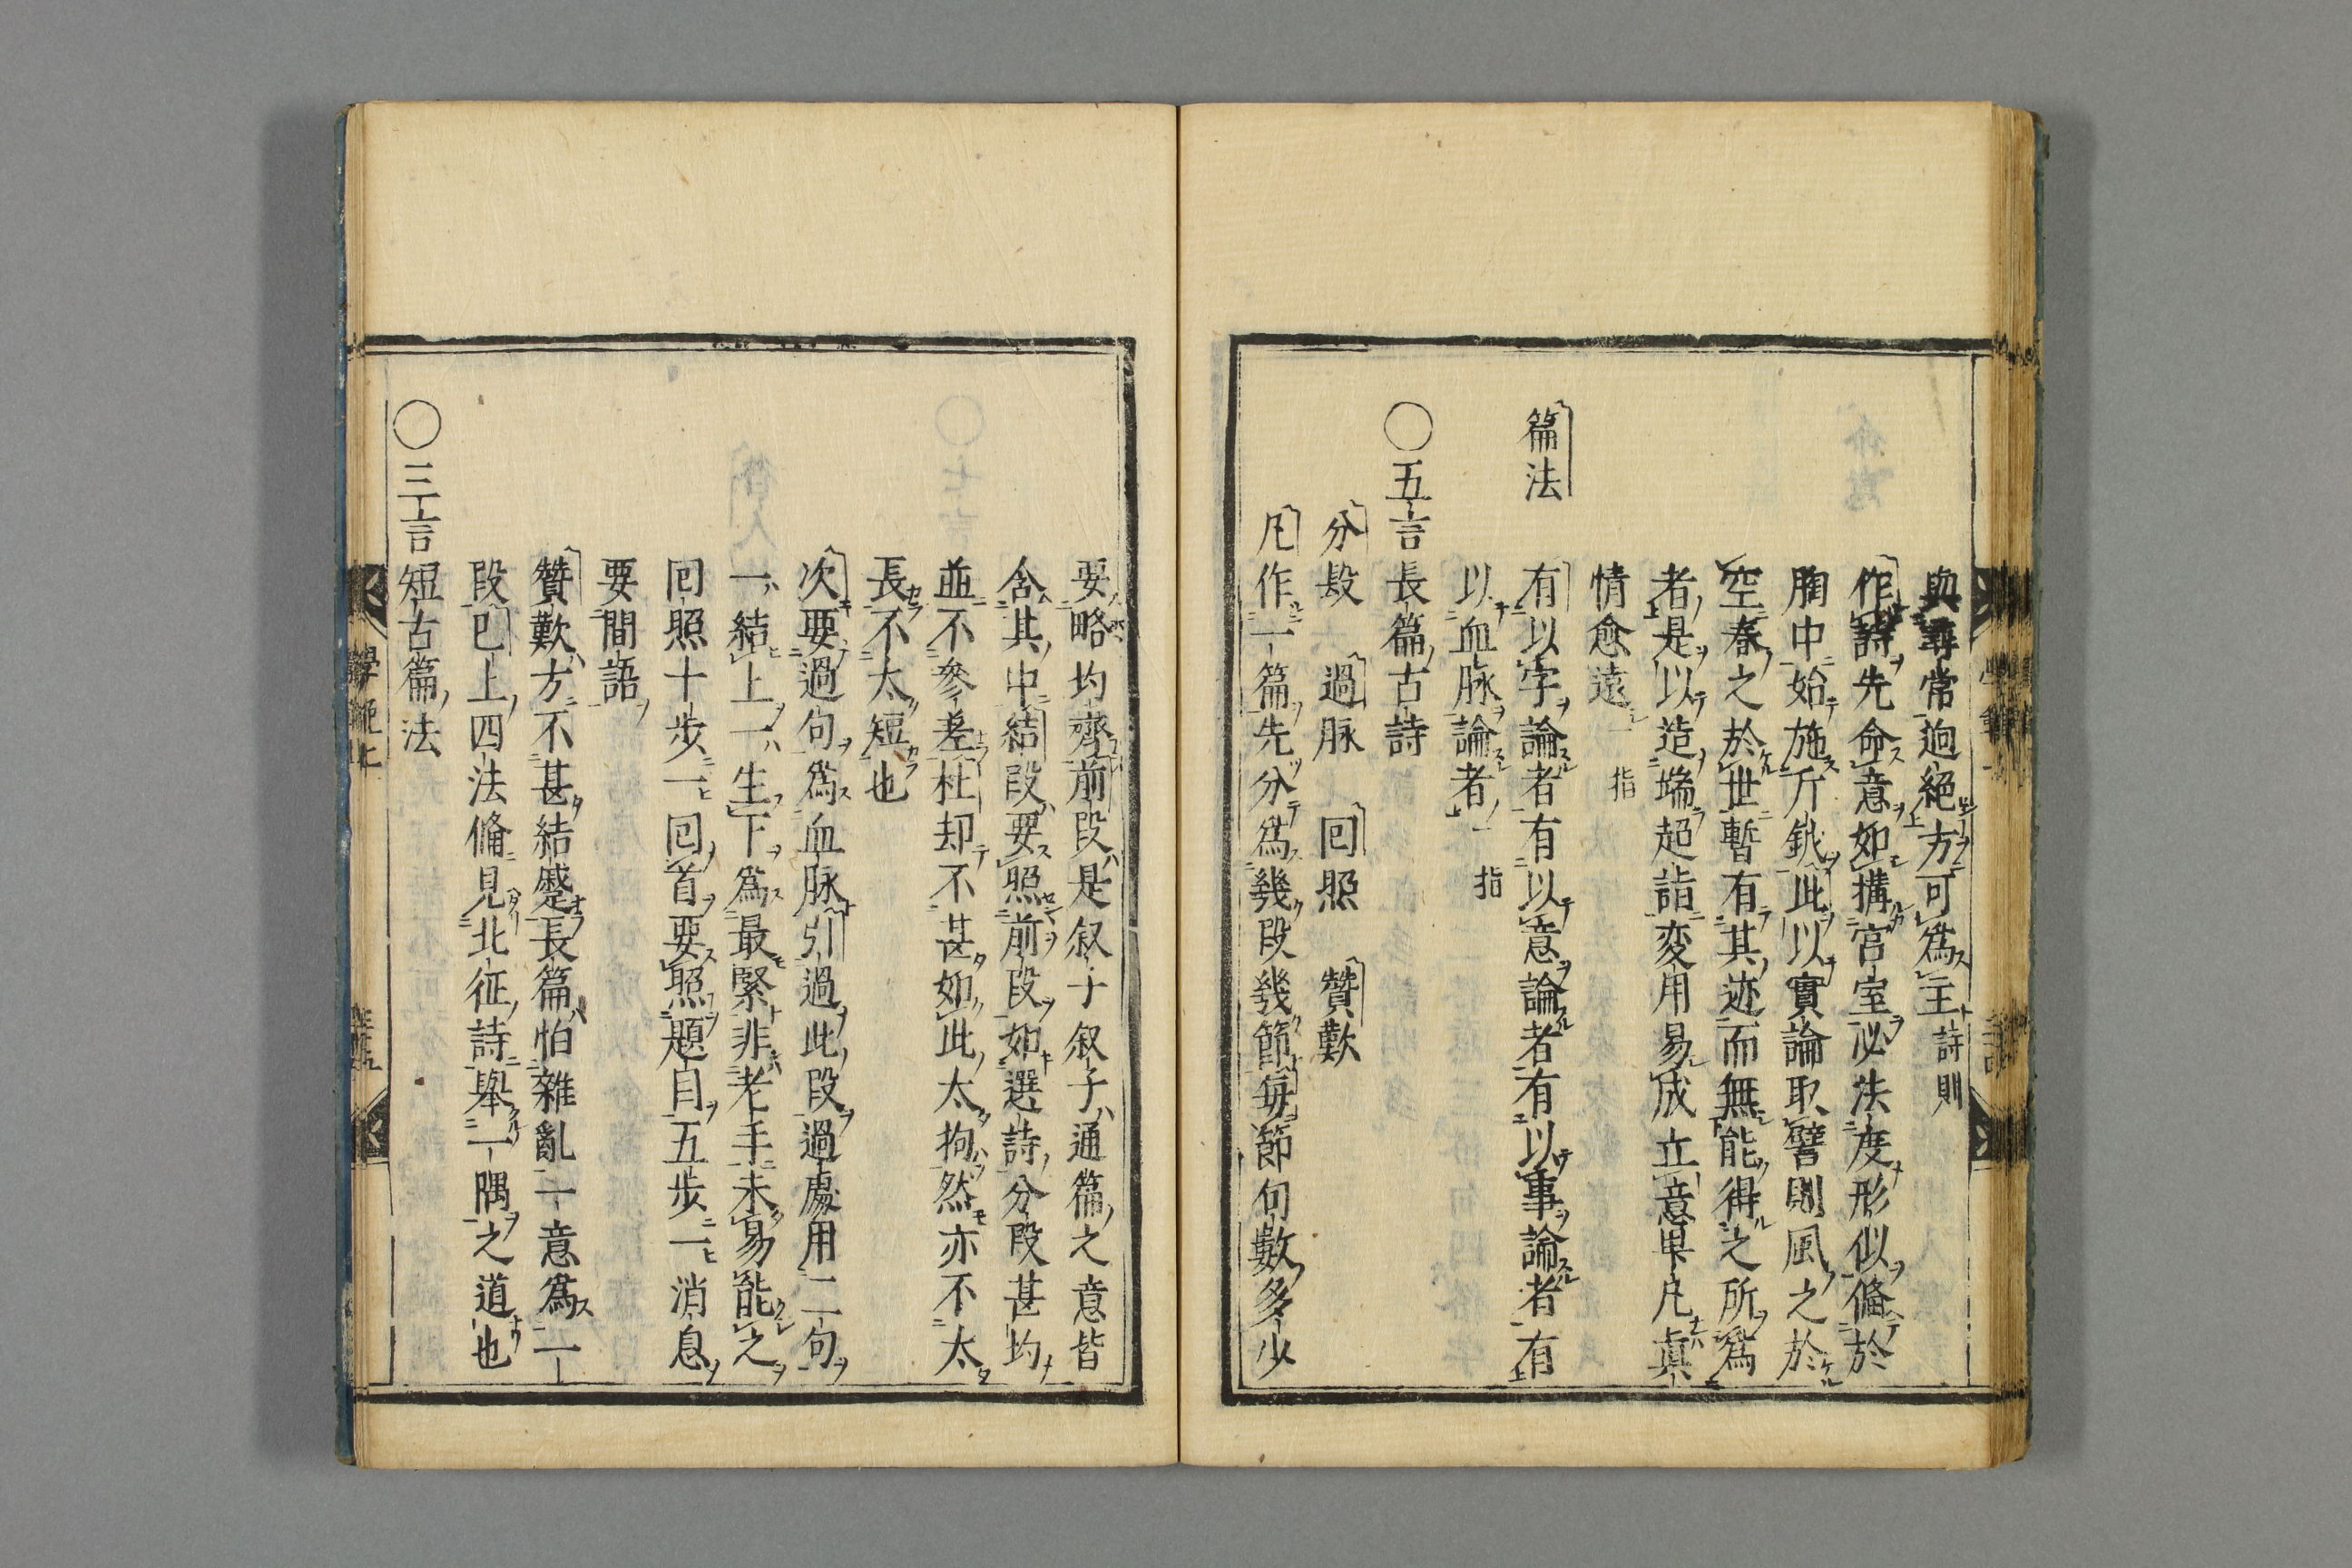 與尋常逈絕方可為主詩則
作詩先命意如搆宮室必法度形似備於
胸中始施斤鉞此以實論取譬則風之於
空春之於世暫有其迹而無能得之所為
者是以造端超詣変用易成立意卑凡真
情愈遠 指
篇法 有以字論者有以意論者有以事論者有
以血脉論者 指
○五言長篇古詩
分段 過脉 回照 贊歎
凡作一篇先分為幾段幾節每節句數多少
要略均齊前段是叙子叙子通篇之意皆
含其中結段要照前段如選詩分段甚均
並不參差杜却不甚如此太拘然亦不太
長不太短也
次要過句為血脉引過此段過處用二句
一結上一生下為最緊非老手未易能之
回照十步一回首要照題目五步一消息
要閒語
贊歎方不甚結蹙長篇怕雜亂一意為一
段已上四法偹見北征詩舉一隅之道也
○三言短古篇法
學範上